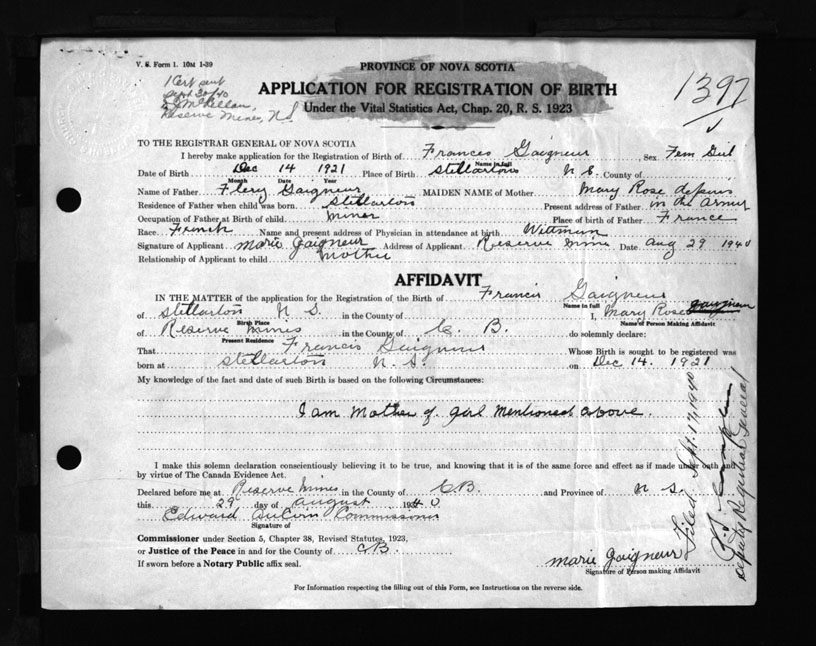 V. S. Form 1. 10M 1-39
PROVINCE OF NOVA SCOTIA
1397
1 Cert sent
Sept 30/40
McLellan,
Reserve Mines, N.S.
APPLICATION FOR REGISTRATION OF BIRTH
Under the Vital Statistics Act, Chap. 20, R. S. 1923
TO THE REGISTRAR GENERAL OF NOVA SCOTIA
I hereby make application for the Registration of Birth of Frances Gaigneur Sex Fem Girl
Name in full
Date of Birth Dec 14 1921 Place of Birth Stellarton N S. County of
Month Date Year
Name of Father Flery Gaigneur MAIDEN NAME of Mother Mary Rose depuis
Residence of Father when child was born Stellarton Present address of Father in the Army
Occupation of Father at Birth of child miner Place of birth of Father France
Race French Name and present address of Physician in attendance at birth Wittman
Signature of Applicant Marie Gaigneur Address of Applicant Reserve Mines Date Aug 29 1940
Relationship of Applicant to child Mother
AFFIDAVIT
IN THE MATTER of the application for the Registration of the Birth of Francis Gaigneur
Name in full
of Stellarton N S. in the County of I, Mary Rose Gaigneur
Birth Place Name of Person Making Affidavit
of Reserve Mines in the County of C. B. do solemnly declare:
Present Residence
That Francis Gaigneur Whose Birth is sought to be registered was
born at Stellarton N. S. on Dec 14. 1921
My knowledge of the fact and date of such Birth is based on the following Circumstances:
I am Mother of girl Mentioned above.
I make this solemn declaration conscientiously believing it to be true, and knowing that it is of the same force and effect as if made under oath and
by virtue of The Canada Evidence Act.
Declared before me at Reserve Mines in the County of C B. and Province of N S.
this 29 day of August 1940
Edward Commissioner
Signature of
Commissioner under Section 5, Chapter 38, Revised Statutes, 1923,
or Justice of the Peace in and for the County of C B.
If sworn before a Notary Public affix seal.
Marie Gaigneur
Signature of Person making Affidavit
For Information respecting the filling out of this Form, see Instructions on the reverse side.
Filed Sept. 17, 1940
Deputy Registrar General